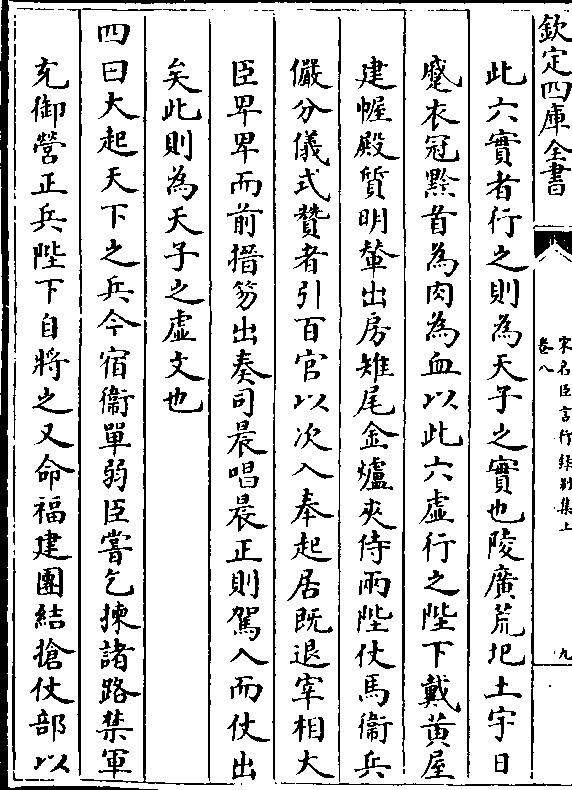 欽定四庫全書
宋名臣言行錄別集上
卷八
九
此六實者行之則為天子之實也陵廣荒圯土宇日
蹙衣冠黔首為肉為血以此六虛行之陛下戴黃屋
建幄殿質明輦出房雉尾金爐夾侍兩陛仗馬衞兵
儼分儀式贊者引百官以次入奉起居既退宰相大
臣卑卑而前搢笏出奏司晨唱晨正則駕入而仗出
矣此則為天子之虛文也
四曰大起天下之兵今宿衞單弱臣嘗乞揀諸路禁軍
充御營正兵陛下自將之又命福建團結搶仗部以